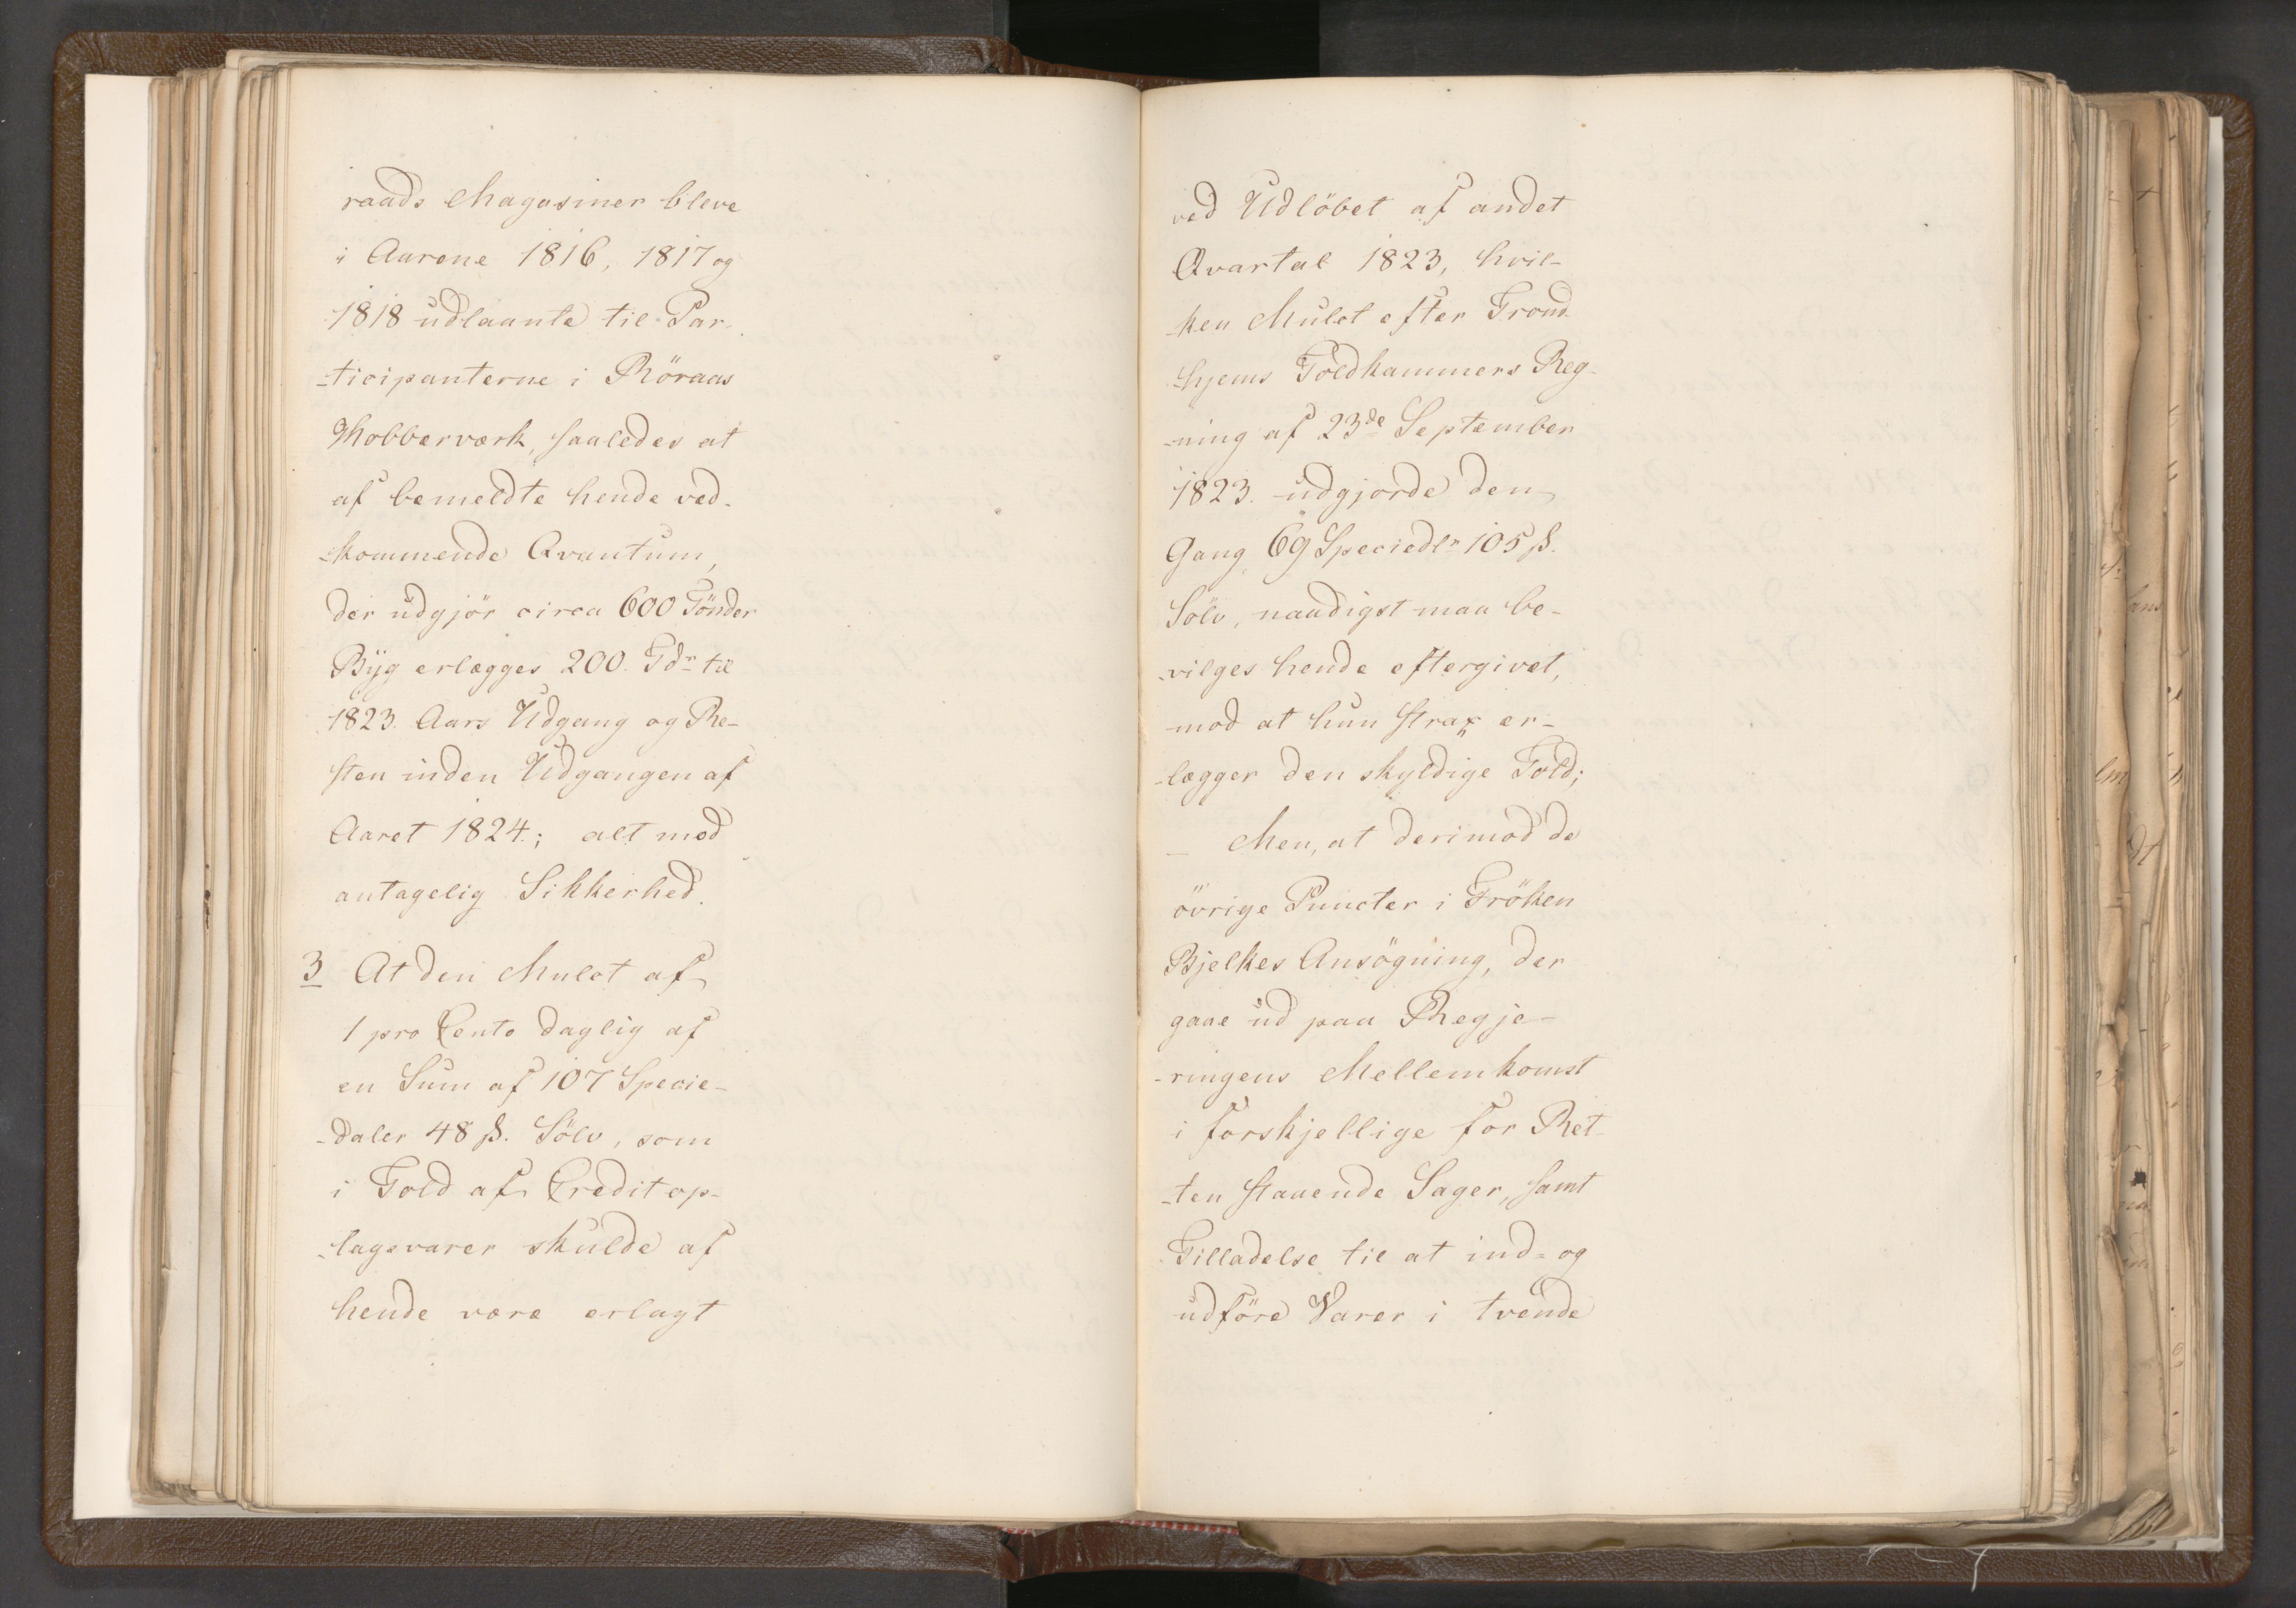 raads Magasiner bleve
i Aarene 1816, 1817 og
1818 udlaante til Par-
-ticipanterne i Röraas
Kobberværk, saaledes at
af bemeldte hende ved-
-kommende Qvantum,
der udgjör circa 600 Tönder
Byg erlægges 200 Tdr til
1823 Aars Udgang og Re-
sten inden Udgangen af
Aaret 1824; alt mod
antagelig Sikkerhed.
3 At den Mulct af
1 pro Cento daglig af
en Sum af 107 Specie-
-daler 48 ß. Sölv, som
i Told af Creditop-
-lagsvarer skulde af
hende være erlagt
ved Udlöbet af andet
Qvartal 1823, hvil-
-ken Mulct efter Trond-
-hjems Toldkammers Reg-
-ning af 23de September
1823 udgjorde den
Gang 69 Speciedlr 105 ß.
Sölv, naadigst maa be-
-vilges hende eftergivet,
mod at hun strax er-
-lægger den skyldige Told;
– Men, at derimod de
övrige Puncter i Fröken
Bjelkes Ansögning, der
gaae ud paa Regje-
-ringens Mellemkomst
i forskjellige for Ret-
-ten staaende Sager, samt
Tilladelse til at ind- og
udföre Varer i tvende